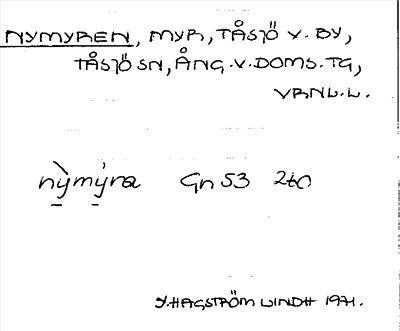 NYMYREN, MYR, TÅSJÖ V. BY,
TÅSJÖ SN, ÅNG. V. DOMS. TG,
VRNL. L.
nỳmýra Gn 53 260
Y. HAGSTRÖM LINDH 1971.